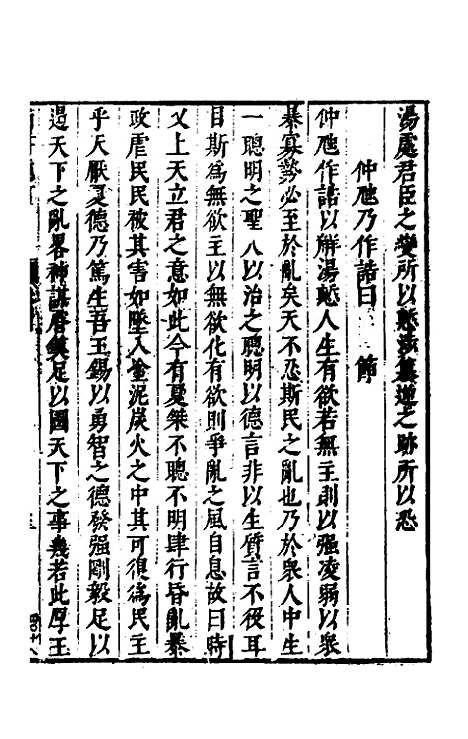 湯處君臣之變所以慙德簒逆之跡所以恐
仲虺乃作誥曰節
仲虺作誥以觧湯慙人生有欲若無主則以强凌弱以衆
暴寡勢必至於亂矣天不忍斯民之亂也乃於衆人中生
一聰明之聖人以治之聰明以德言非以生質言不役耳
目斯為無欲主以無欲化有欲則爭亂之風自息故曰時
乂上天立君之意如此今有夏桀不聰不明肆行昏亂暴
政虐民民被其害如墜入塗泥炭火之中其可復為民主
乎天厭夏德乃篤生吾王錫以勇智之德發强剛毅足以
遏天下之亂畧神謀睿筭足以圖天下之事幾若此厚王